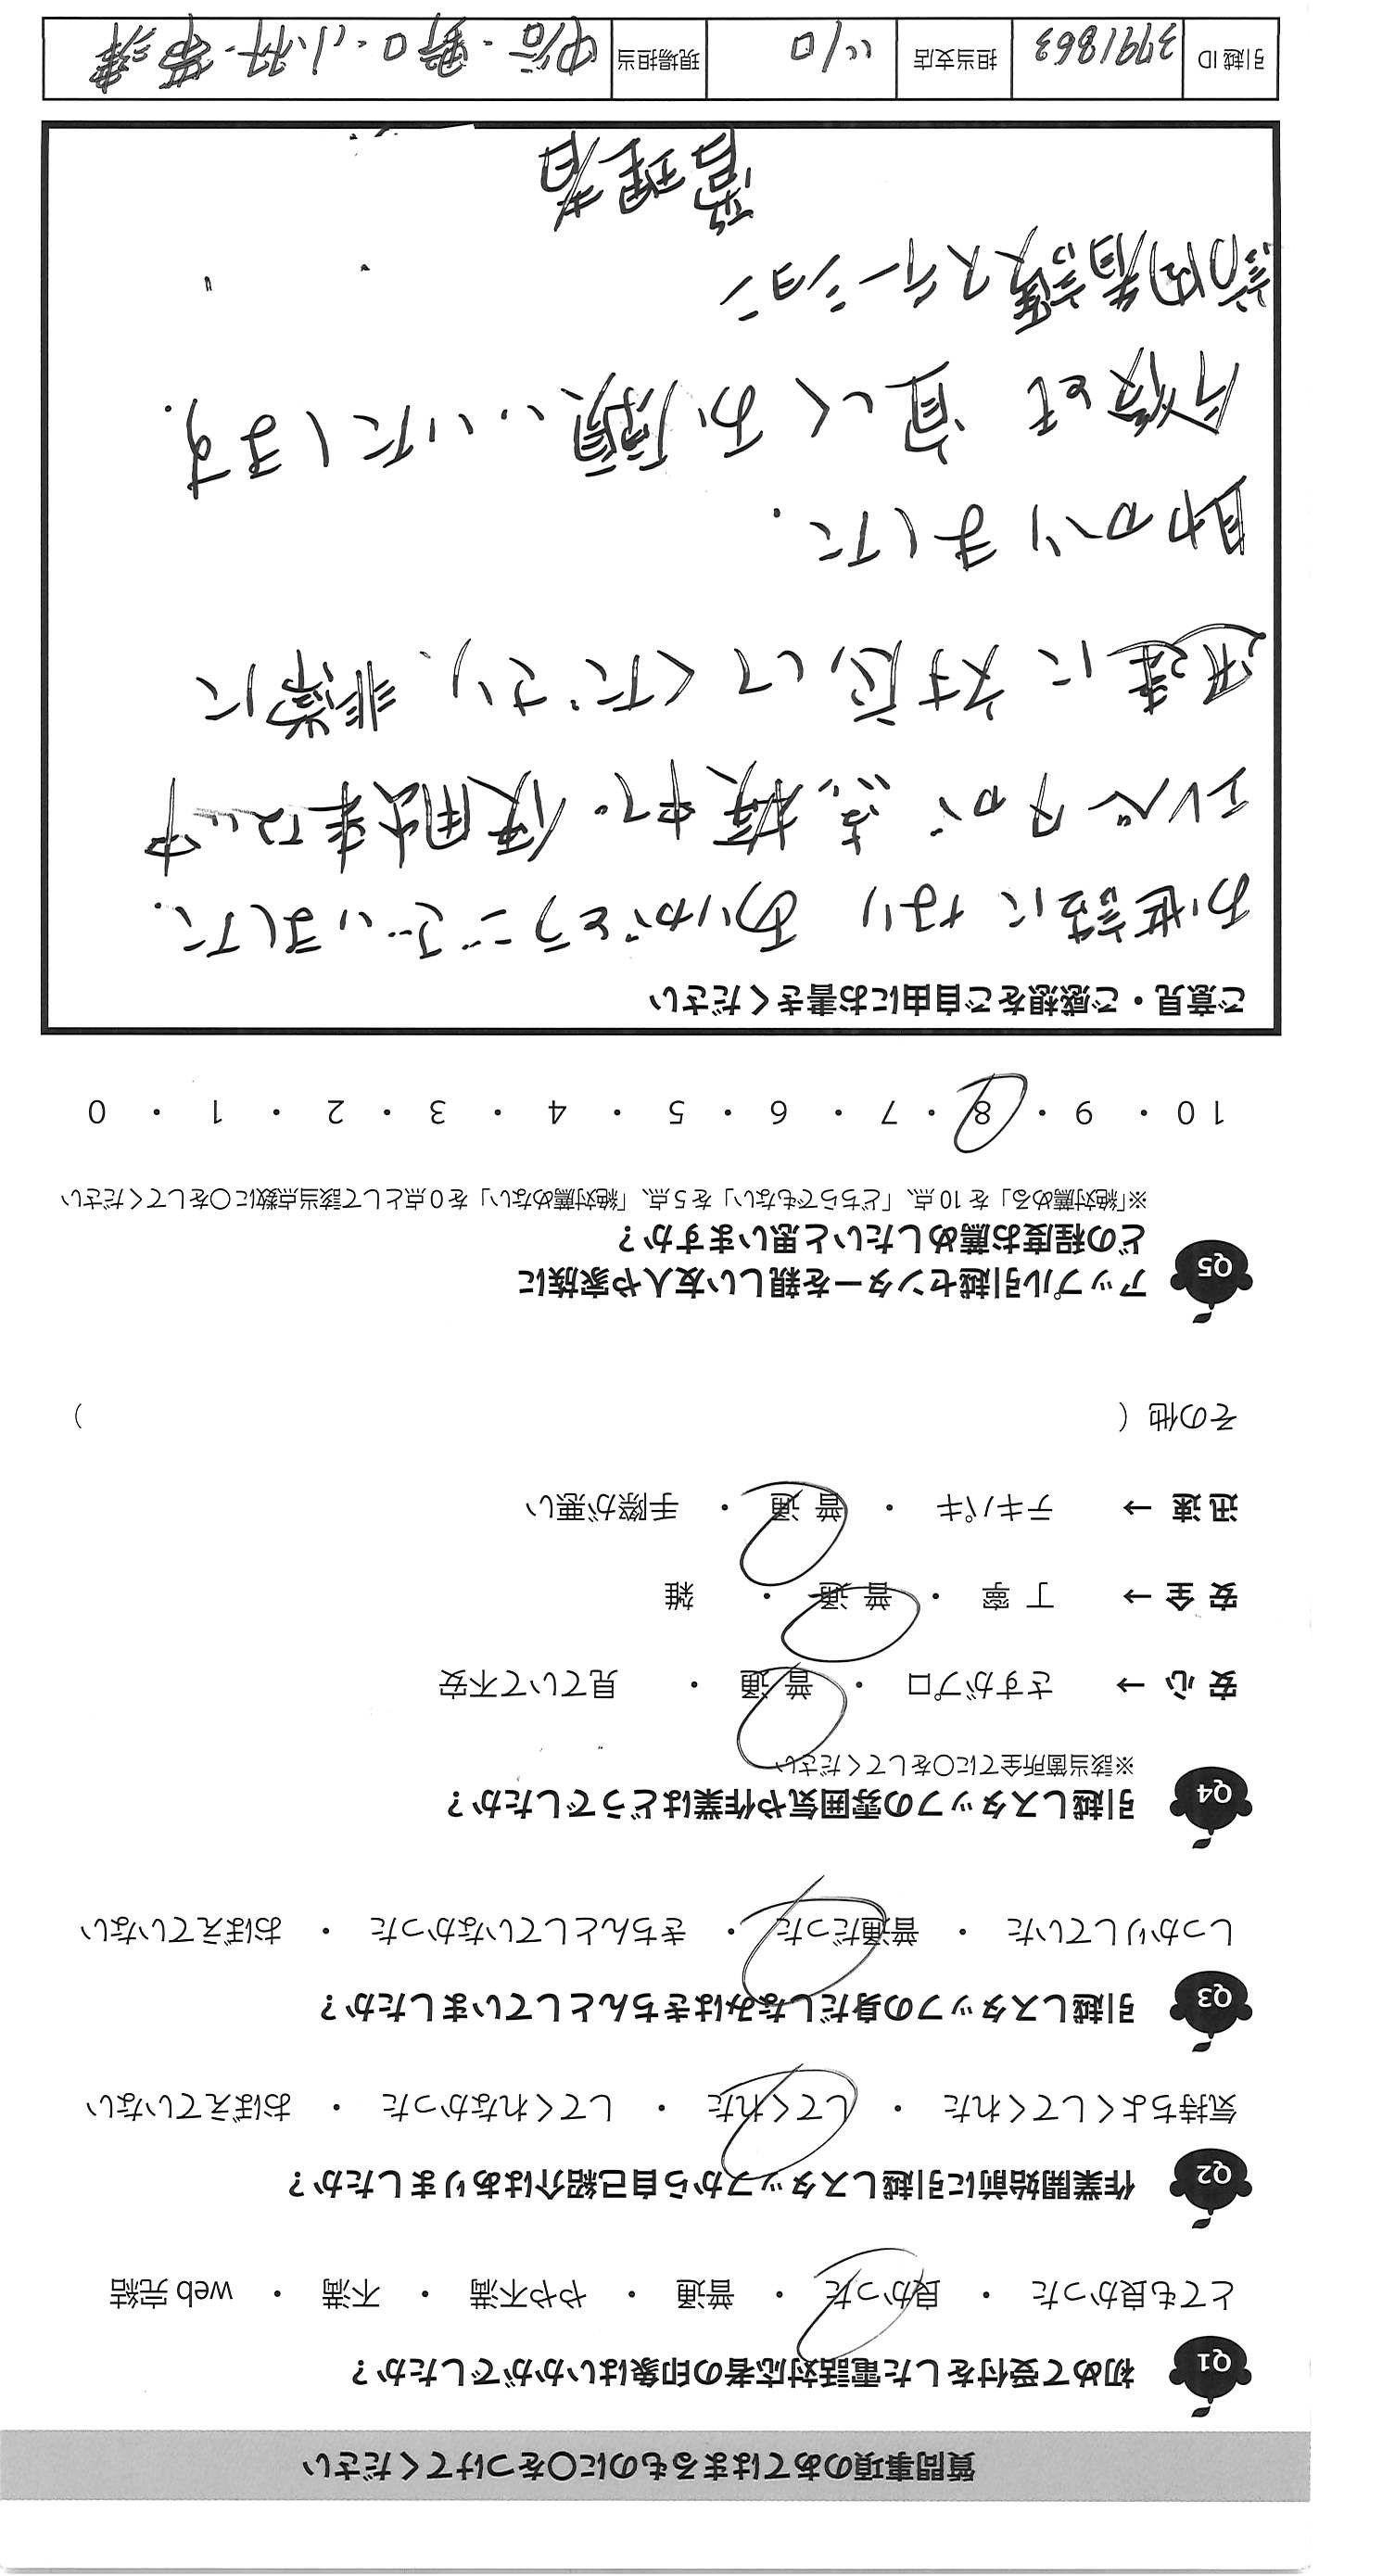 質問事項のあてはまるものに〇をつけてください
Q1 初めて受付をした電話対応者の印象はいかがでしたか？
とても良かった ・ 良かった ・ 普通 ・ やや不満 ・ 不満 ・ web 完結
Q2 作業開始前に引越しスタッフから自己紹介はありましたか？
気持ちよくしてくれた ・ してくれた ・ してくれなかった ・ おぼえていない
Q3 引越しスタッフの身だしなみはきちんとしていましたか？
しっかりしていた ・ 普通だった ・ きちんとしていなかった ・ おぼえていない
Q4 引越しスタッフの雰囲気や作業はどうでしたか？
※該当箇所全てに〇をしてください
安 心 → さすがプロ ・ 普 通 ・ 見ていて不安
安 全 → 丁 寧 ・ 普 通 ・ 雑
迅 速 → テキパキ ・ 普 通 ・ 手際が悪い
その他（ ）
Q5 アップル引越センターを親しい友人や家族に
どの程度お薦めしたいと思いますか？
※「絶対薦める」を 10 点、「どちらでもない」を 5 点、「絶対薦めない」を 0 点として該当点数に〇をしてください
10 ・ 9 ・ 8 ・ 7 ・ 6 ・ 5 ・ 4 ・ 3 ・ 2 ・ 1 ・ 0
ご意見・ご感想をご自由にお書きください
お世話になり ありがとうございました.
エレベータが 点検中で 使用出来ない中
迅速に 対応してくださり、非常に
助かりました.
今後とも 宜しくお願いいたします.
訪問看護ステーション
管理者
引越 ID 3791863 担当支店 現場担当 野口・小林・